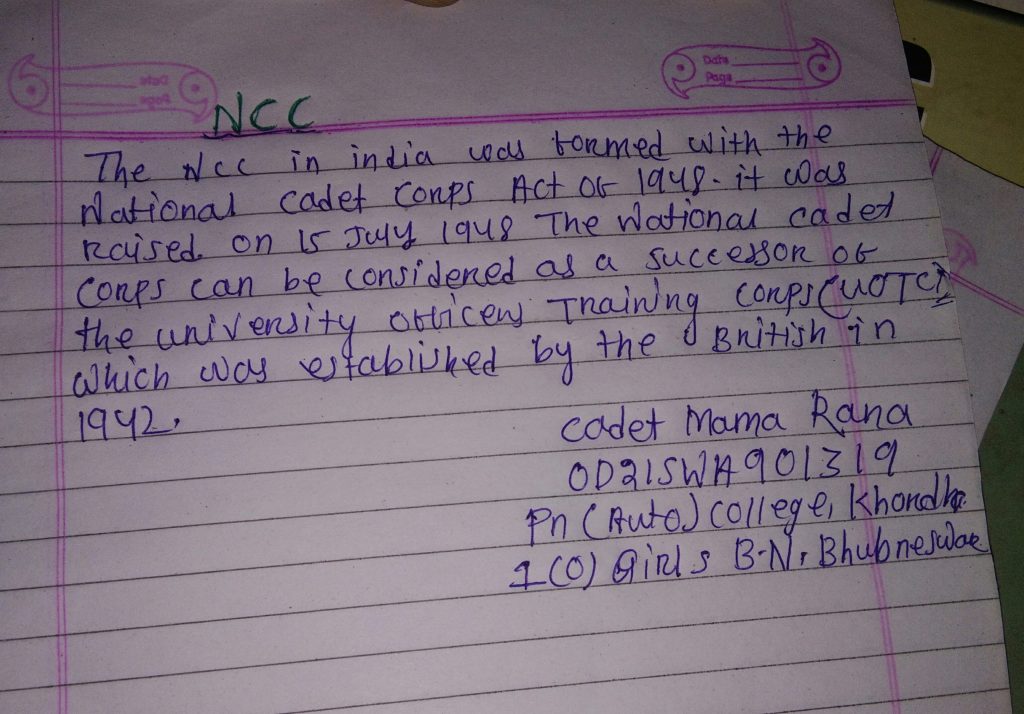 Date
Page
NCC
The Ncc in india was formed with the
National cadet Corps Act of 1948. it was
Raised on 15 July 1948 The National cadet
Corps can be considered as a successor of
the university officers Training corps (UOTC)
which was established by the British in
1942.
cadet Mama Rana
OD21SWA901319
Pn (Auto) college, Khordha
1(O) Girls B.N, Bhubneswar